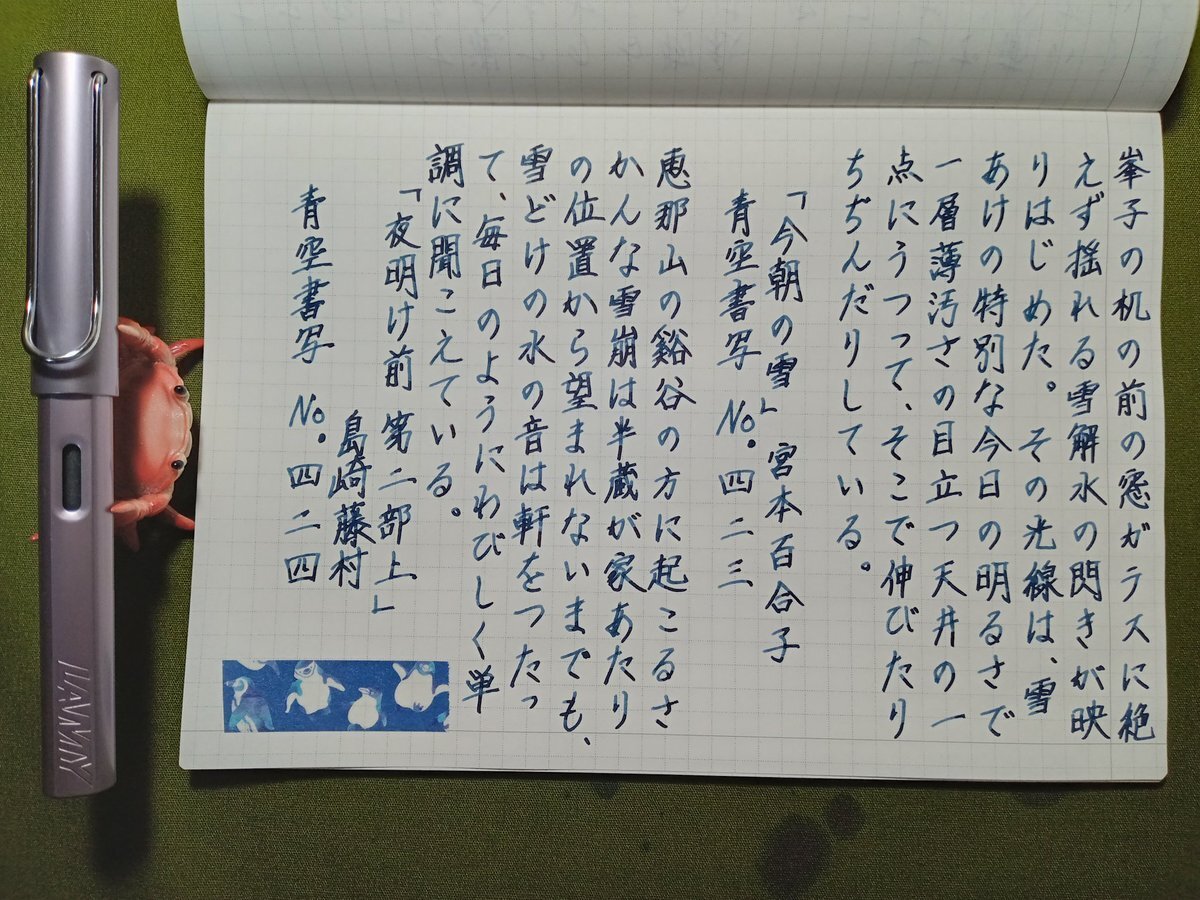 峯子の机の前の窓ガラスに絶
えず揺れる雪解水の閃きが映
りはじめた。その光線は、雪
あけの特別な今日の明るさで
一層薄汚さの目立つ天井の一
点にうつって、そこで伸びたり
ちぢんだりしている。
「今朝の雪」 宮本百合子
青空書写 No.四二三
恵那山の谿谷の方に起こるさ
かんな雪崩は半蔵が家あたり
の位置から望まれないまでも、
雪どけの水の音は軒をつたっ
て、毎日のようにわびしく単
調に聞こえている。
「夜明け前 第二部上」
島崎藤村
青空書写 No.四二四
LAMY